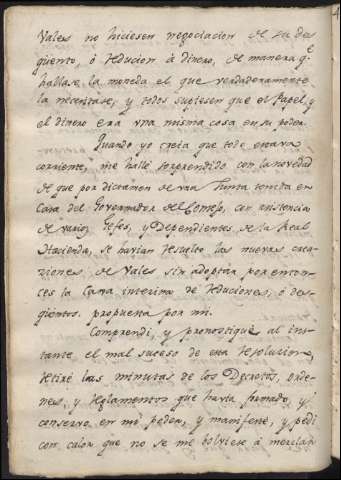 Vales no hiciesen negociacion de su des
qüento, ó reducion á dinero, de manera q.e
hallase la moneda el que verdaderamente
la necesitase, y todos supiesen que el Papel, y
el dinero era una misma cosa en su poder.
Quando yo creia que todo estava
corriente, me hallé sorprendido con la novedad
de que por dictamen de una Junta tenida en
Casa del Governador del Consejo, con asistencia
de varios Gefes, y Dependientes de la Real
Hacienda, se havian resuelto las nuevas crea
ziones de Vales sin adoptar por enton
ces la Caxa interina de reduciones, ó des
qüentos propuesta por mi.
Comprendi, y pronostiqué al ins
tante el mal suceso de esta resolucion,
retiré las minutas de los Decretos, orde
nes, y reglamentos que havia formado, y
conservo en mi poder, y manifesté, y pedi
con calor que no se me bolviese á mezclar